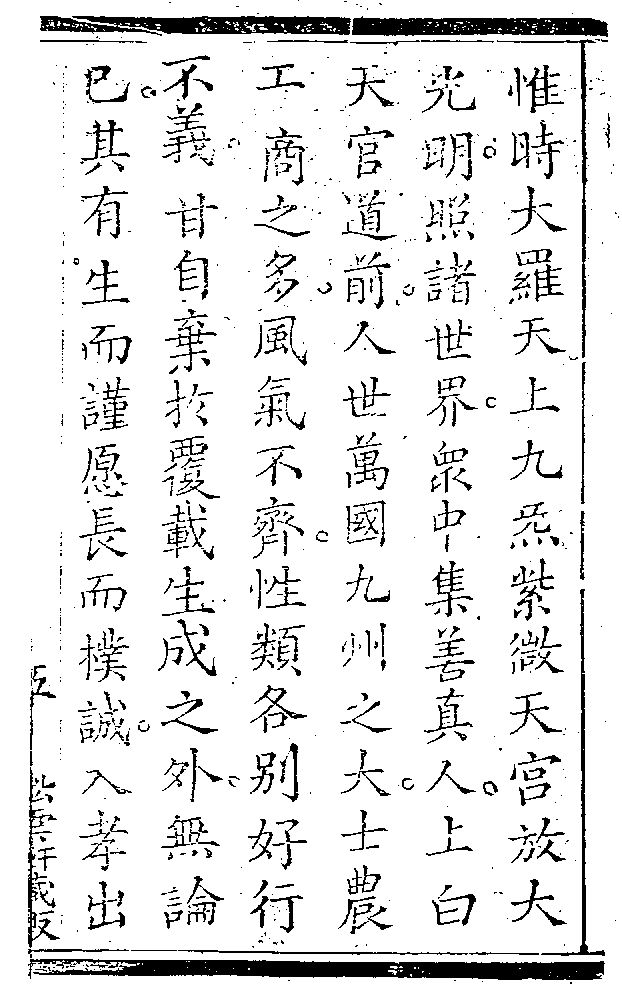 惟時大羅天上九炁紫微天宮放大
光明。照諸世界。衆中集善真人。上白
天官道前。人世萬國九州之大。士農
工商之多。風氣不齊。性類各別好行
不義。甘自棄於覆載生成之外。無論
已。其有生而謹愿長而樸誠。入孝出
五
松雲軒藏板